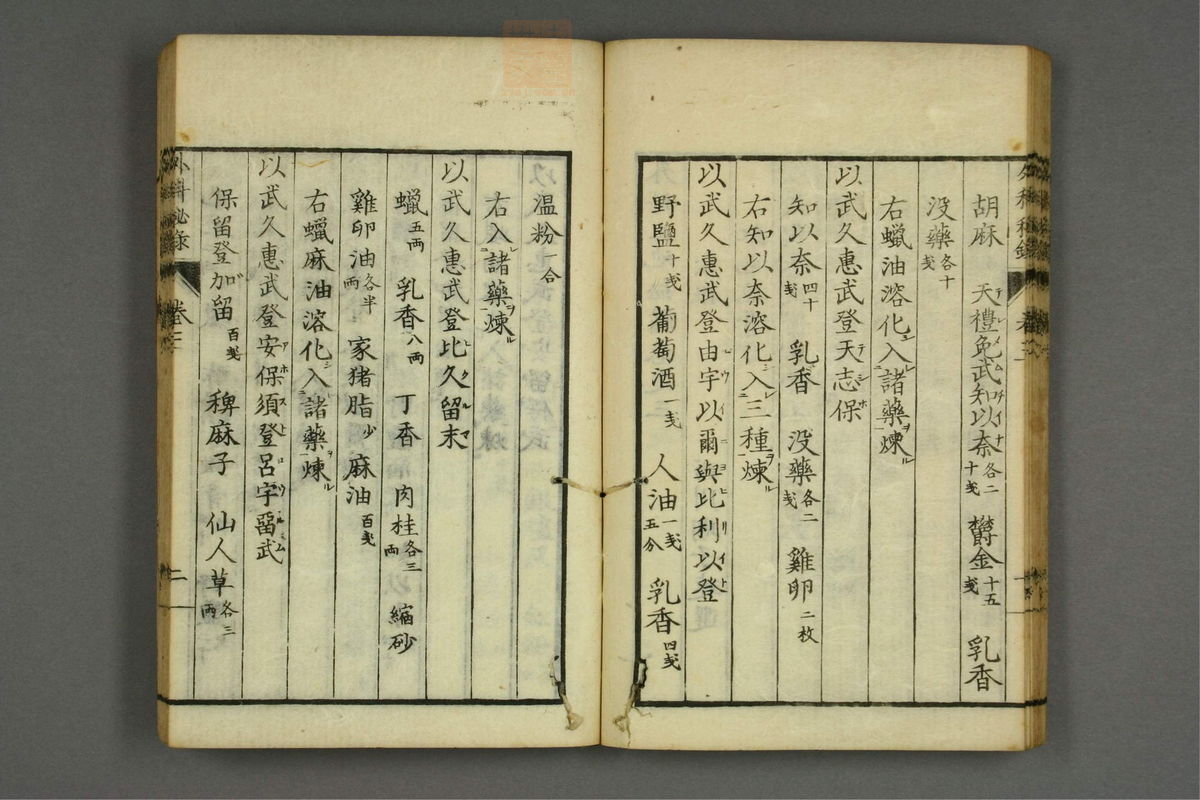 胡麻 天禮免武知以奈各二十戔 欝金十五戔 乳香
没藥各十戔
右蠟油溶化シ入諸藥ヲ煉ル
以武久惠武登天志保
知以奈四十戔 乳香 没藥各二戔 雞卵二枚
右知以奈溶化シ入三種ヲ煉ル
以武久惠武登由宇以爾與比利以登
野鹽十戔 葡萄酒一戔 人油一戔五分 乳香四戔
温粉一合
右入諸藥ヲ煉ル
以武久惠武登比久留末
蠟五两 乳香八两 丁香 肉桂各三两 縮砂
雞卵油各半两 家猪脂少 麻油百戔
右蠟麻油溶化シ入諸藥ヲ煉ル
以武久惠武登安保須登呂宇留武
保留登加留百戔 稗麻子 仙人草各三两
外科秘録 卷三 二